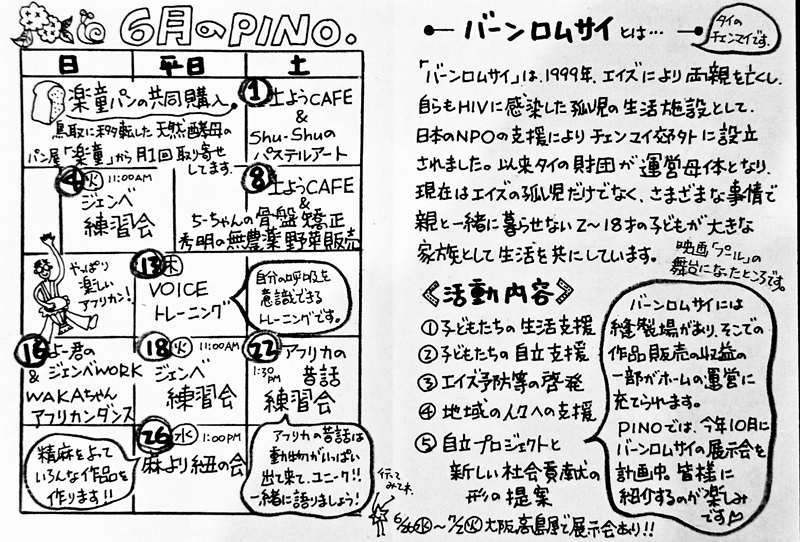 6月のPINO.
日 平日 土
楽童パンの共同購入
鳥取に移転した天然酵母の
パン屋「楽童」から月1回取り寄せ
してます。
① 土ようCAFE
&
Shu-Shuの
パステルアート
④火 11:00AM
ジェンベ
練習会
⑧ 土ようCAFE
&
ちーちゃんの骨盤矯正
秀明の無農薬野菜販売
やっぱり
楽しい
アフリカン!
⑬木
VOICE
トレーニング
自分の呼吸を
意識できる
トレーニングです。
⑯ よー君の
& ジェンベWORK
WAKAちゃん
アフリカンダンス
⑱火 11:00AM
ジェンベ
練習会
㉒ アフリカの
1:30PM 昔話
練習会
㉖水 1:00PM
麻より紐の会
精麻をよって
いろんな作品を
作ります!!
アフリカの昔話は
動物がいっぱい
出て来て、ユニーク!!
一緒に語りましょう!
バーンロムサイとは…
タイの
チェンマイです。
「バーンロムサイ」は、1999年、エイズにより両親を亡くし、
自らもHIVに感染した孤児の生活施設として、
日本のNPOの支援によりチェンマイ郊外に設立
されました。以来タイの財団が運営母体となり、
現在はエイズの孤児だけでなく、さまざまな事情で
親と一緒に暮らせない2〜18才の子どもが大きな
家族として生活を共にしています。
映画「プール」の
舞台になったところです。
《活動内容》
① 子どもたちの生活支援
② 子どもたちの自立支援
③ エイズ予防等の啓発
④ 地域の人々への支援
⑤ 自立プロジェクトと
新しい社会貢献の
形の提案
バーンロムサイには
縫製場があり、そこでの
作品販売の収益の
一部がホームの運営に
充てられます。
PINOでは、今年10月に
バーンロムサイの展示会を
計画中。皆様に
紹介するのが楽しみ
です♡
行って
みてネ。
6/26水〜7/2火 大阪高島屋で展示会あり!!